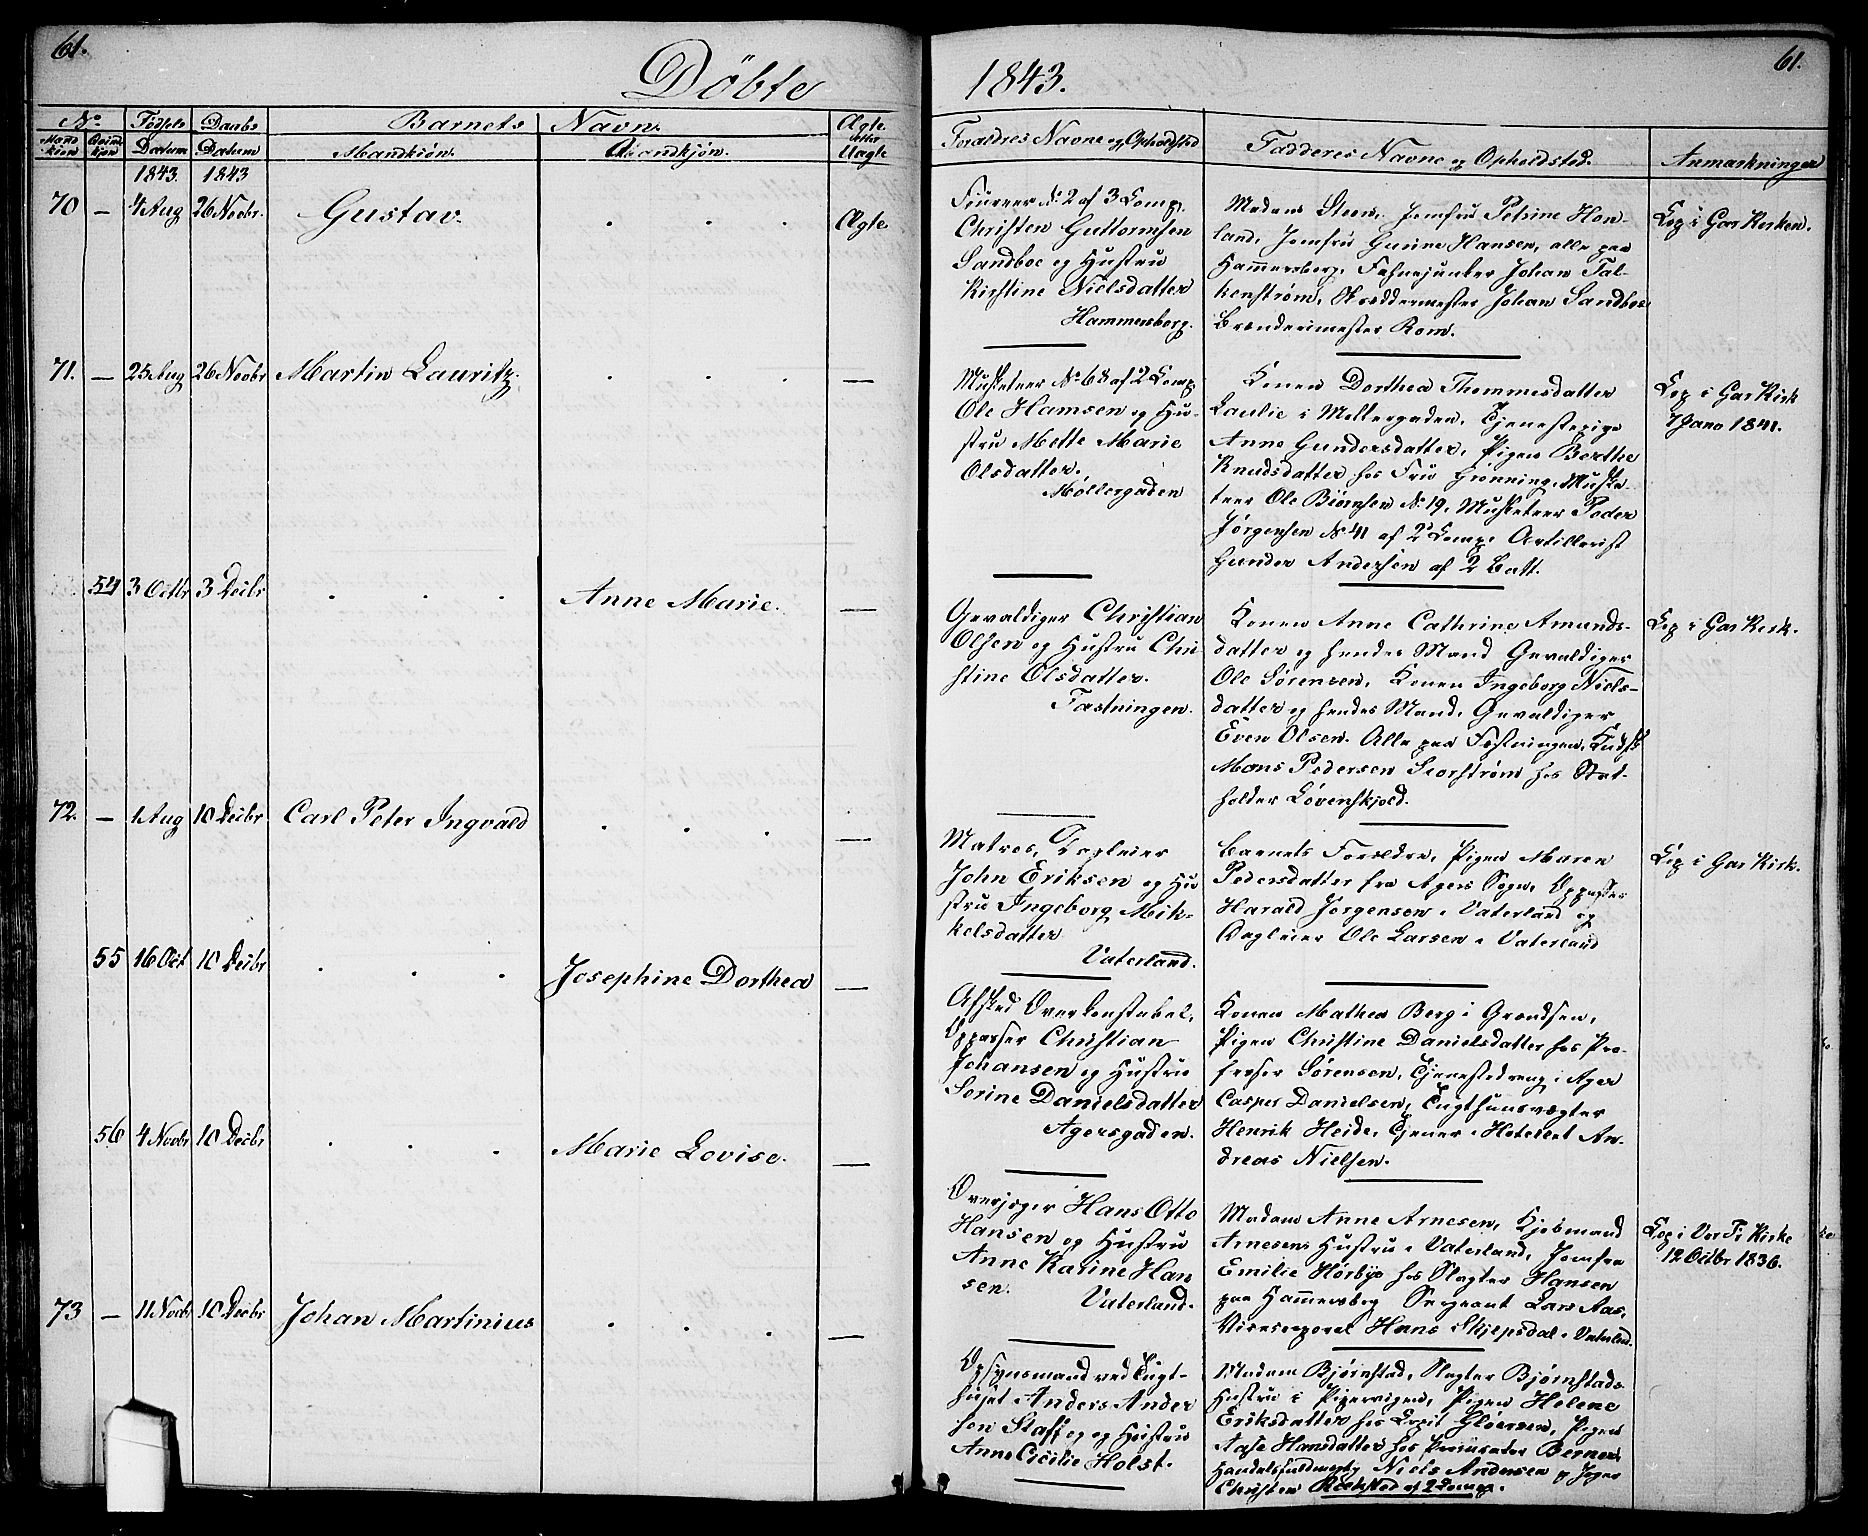 61.
Döbte
1843.
61.
No
Fødsels
Daabs
Barnets
Navn.
Ægte
Forældres Navne og Opholdsted
Fadderes Navne og Opholdsted.
Anmærkninger
Mandkjøn
Qvindkjøn
Datum
Datum
Mandkiøn.
Qvindkjøn.
eller
Uægte
1843.
1843
70 – 4 Aug 26 Novbr. Gustav. Ægte
Christen Guttormsen
Sandboe og Hustru
Kirstine Nielsdatter
Hammersborg.
Madam Steen, Jomfru Petrine Hon-
land, Jomfru Gunine Hansen, alle paa
Hammersberg, Fahnejunker Johan Fal-
kenstrøm, Skreddermester Johan Sandboe
Brænderimester Rom.
Lep i Gar Kirken.
71. – 25 Aug 26 Novbr Martin Lauritz. –
Musketeer No 68 af 2 Comp
Ole Hamsen og Hu-
stru Mette Marie
Olsdatter.
Møllergaden
Konen Dorthea Thommesdatter
Laulie i Møllergaden, Tjenestepige
Anne Gundersdatter, Pigen Berthe
Knudsdatter hos Fru Grønning, Muske
teer Ole Biørnsen No 19, Musketeer Peder
Jørgensen No 41 af 2 Comp. Artillerist
Gunder Andersen af 2 Batt.
Lep i Gar Kirk
7 Jano 1841.
54 3 Octbr 3 Decbr Anne Marie. –
Gevaldiger Christian
Olsen og Hustru Chri
stine Olsdatter.
Fæstningen.
Konen Anne Cathrine Amunds-
datter og hendes Mand Gevaldiger
Ole Sørensen, Konen Ingeborg Niels-
datter og hendes Mand, Gevaldiger
Even Olsen. Alle paa Fæstningen, Kudsk
Mons Pedersen Storstrøm hos Stat-
holder Løvenskjold.
Lep i Gar Kirk.
72. – 1 Aug 10 Decbr Carl Peter Ingvald –
Matros, Dagleier
John Eriksen og Hu
stru Ingeborg Mik-
kelsdatter
Vaterland.
Barnets Forældre, Pigen Maren
Pedersdatter fra Agers Sogn, Oppasser
Harald Jørgensen i Vaterland og
Dagleier Ole Larsen i Vaterland
Lep i Gar Kirk.
55 16 Oct 10 Decbr Josephine Dorthea –
Afsked Overkonstabel,
Oppasser Christian
Johansen og Hustru
Sorine Danielsdatter
Agersgaden.
Konen Mathea Berg i Grændsen,
Pigen Christine Danielsdatter hos Pro-
fesser Sørensen, Tjenestedreng i Ager
Casper Danielsen, Tugthuusvægter
Henrik Heide, Tjener i Hotellet An-
dreas Nielsen.
56 4 Novbr 10 Decbr Marie Lovise. –
Overjæger Hans Otto
Hansen og Hustru
Anne Karine Han
sen.
Vaterland.
Madam Anne Arnesen, Kjøbmand
Arnesens Hustru i Vaterland, Jomfru
Emilie Hørbye hos Slagter Hansen
paa Hammersberg Sergeant Lars Aas,
Vicecorporal Hans Skjepsdal i Vaterlnd.
Lep i Vor F. Kirke
12 Octbr 1836.
73 – 11 Novbr 10 Decbr Johan Martinius –
Opsynsmand ved Tugt-
huset Anders Ander
sen Staff og Hustru
Anne Cicilie Holst.
Madam Bjørnstad, Slagter Bjørnstads
Hustru i Pipervigen, Pigen Helene
Eriksdatter hos Gløersen, Pigen
Aase Hansdatter hos Berner,
Niels Andersen og Jæger
Christen af 2 Comp.